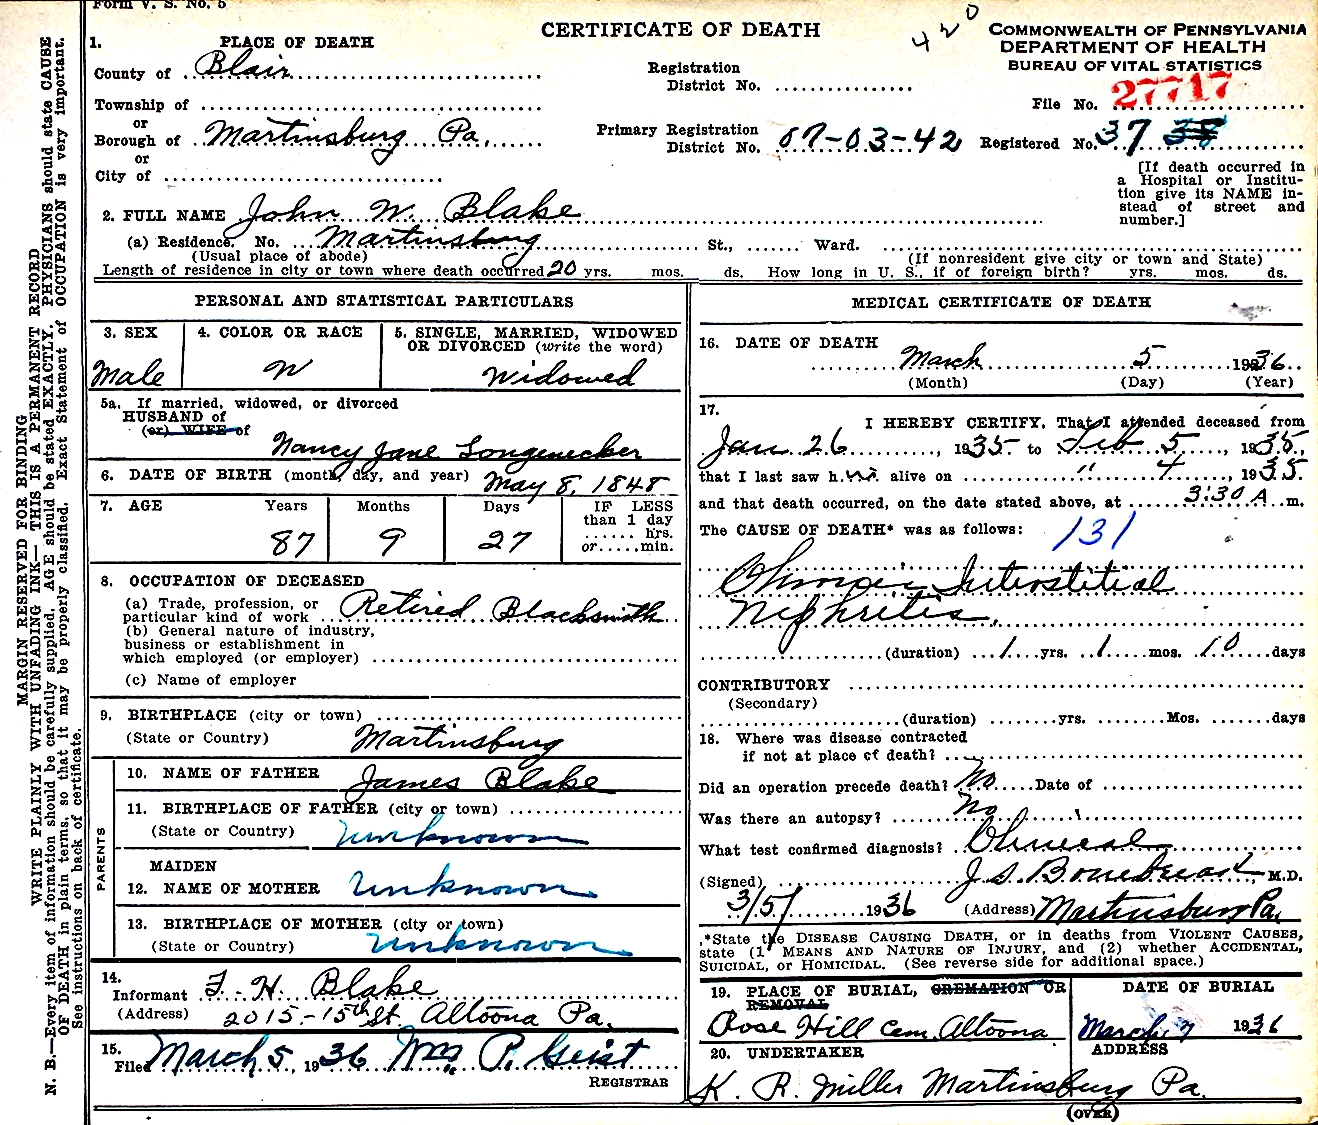 Form V. S. No. 5
CERTIFICATE OF DEATH
420
COMMONWEALTH OF PENNSYLVANIA
DEPARTMENT OF HEALTH
BUREAU OF VITAL STATISTICS
1. PLACE OF DEATH
County of Blair
Registration District No.
File No. 27717
Township of
or
Borough of Martinsburg Pa.
Primary Registration District No. 07-03-42
Registered No. 37 38
or
City of
[If death occurred in a Hospital or Institution give its NAME instead of street and number.]
2. FULL NAME John W. Blake
(a) Residence. No. Martinsburg St., Ward.
(Usual place of abode) (If nonresident give city or town and State)
Length of residence in city or town where death occurred 20 yrs. mos. ds. How long in U. S., if of foreign birth? yrs. mos. ds.
PERSONAL AND STATISTICAL PARTICULARS
3. SEX
Male
4. COLOR OR RACE
W
5. SINGLE, MARRIED, WIDOWED OR DIVORCED (write the word)
Widowed
5a. If married, widowed, or divorced
HUSBAND of
(or) WIFE of
Nancy Jane Longenecker
6. DATE OF BIRTH (month, day, and year) May 8, 1848
7. AGE Years Months Days IF LESS than 1 day
87 9 27 hrs. or min.
8. OCCUPATION OF DECEASED
(a) Trade, profession, or particular kind of work Retired Blacksmith
(b) General nature of industry, business or establishment in which employed (or employer)
(c) Name of employer
9. BIRTHPLACE (city or town)
(State or Country) Martinsburg
PARENTS
10. NAME OF FATHER James Blake
11. BIRTHPLACE OF FATHER (city or town)
(State or Country) Unknown
MAIDEN
12. NAME OF MOTHER Unknown
13. BIRTHPLACE OF MOTHER (city or town)
(State or Country) Unknown
14.
Informant F. H. Blake
(Address) 2015-15th St. Altoona Pa.
15.
Filed March 5, 1936 Wm. P. Geist
REGISTRAR
MEDICAL CERTIFICATE OF DEATH
16. DATE OF DEATH
March 5 1936
(Month) (Day) (Year)
17.
I HEREBY CERTIFY, That I attended deceased from
Jan 26, 1935 to Feb 5, 1935,
that I last saw him alive on " 4, 1935.
and that death occurred, on the date stated above, at 3:30 A m.
The CAUSE OF DEATH* was as follows:
131
Chronic Interstitial
Nephritis.
(duration) 1 yrs. 1 mos. 10 days
CONTRIBUTORY
(Secondary)
(duration) yrs. Mos. days
18. Where was disease contracted
if not at place of death?
Did an operation precede death? No Date of
Was there an autopsy? No
What test confirmed diagnosis? Clinical
(Signed) J. S. Bonebreak, M.D.
3/5/ 1936 (Address) Martinsburg Pa.
*State the DISEASE CAUSING DEATH, or in deaths from VIOLENT CAUSES, state (1) MEANS AND NATURE OF INJURY, and (2) whether ACCIDENTAL, SUICIDAL, or HOMICIDAL. (See reverse side for additional space.)
19. PLACE OF BURIAL, CREMATION OR REMOVAL
Rose Hill Cem. Altoona
DATE OF BURIAL
March 7 1936
20. UNDERTAKER ADDRESS
K. R. Miller Martinsburg Pa.
(OVER)
MARGIN RESERVED FOR BINDING
WRITE PLAINLY WITH UNFADING INK—THIS IS A PERMANENT RECORD
N. B.—Every item of information should be carefully supplied. AGE should be stated EXACTLY. PHYSICIANS should state CAUSE
OF DEATH in plain terms, so that it may be properly classified. Exact Statement of OCCUPATION is very important.
See instructions on back of certificate.